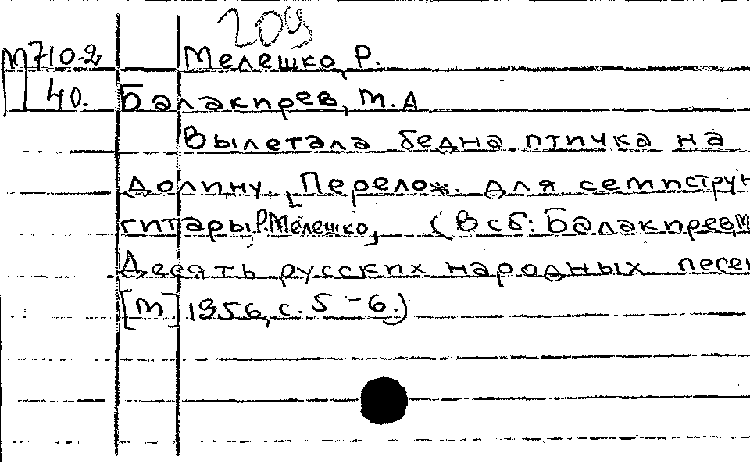 209
М710-2 Мелешко, Р.
40. Балакирев, М. А
Вылетала бедна птичка на
долину. [Перелож. для семиструн
гитары Р. Мелешко, (В сб: Балакирев М
Десять русских народных песен
[М] 1956, с. 5-6.)